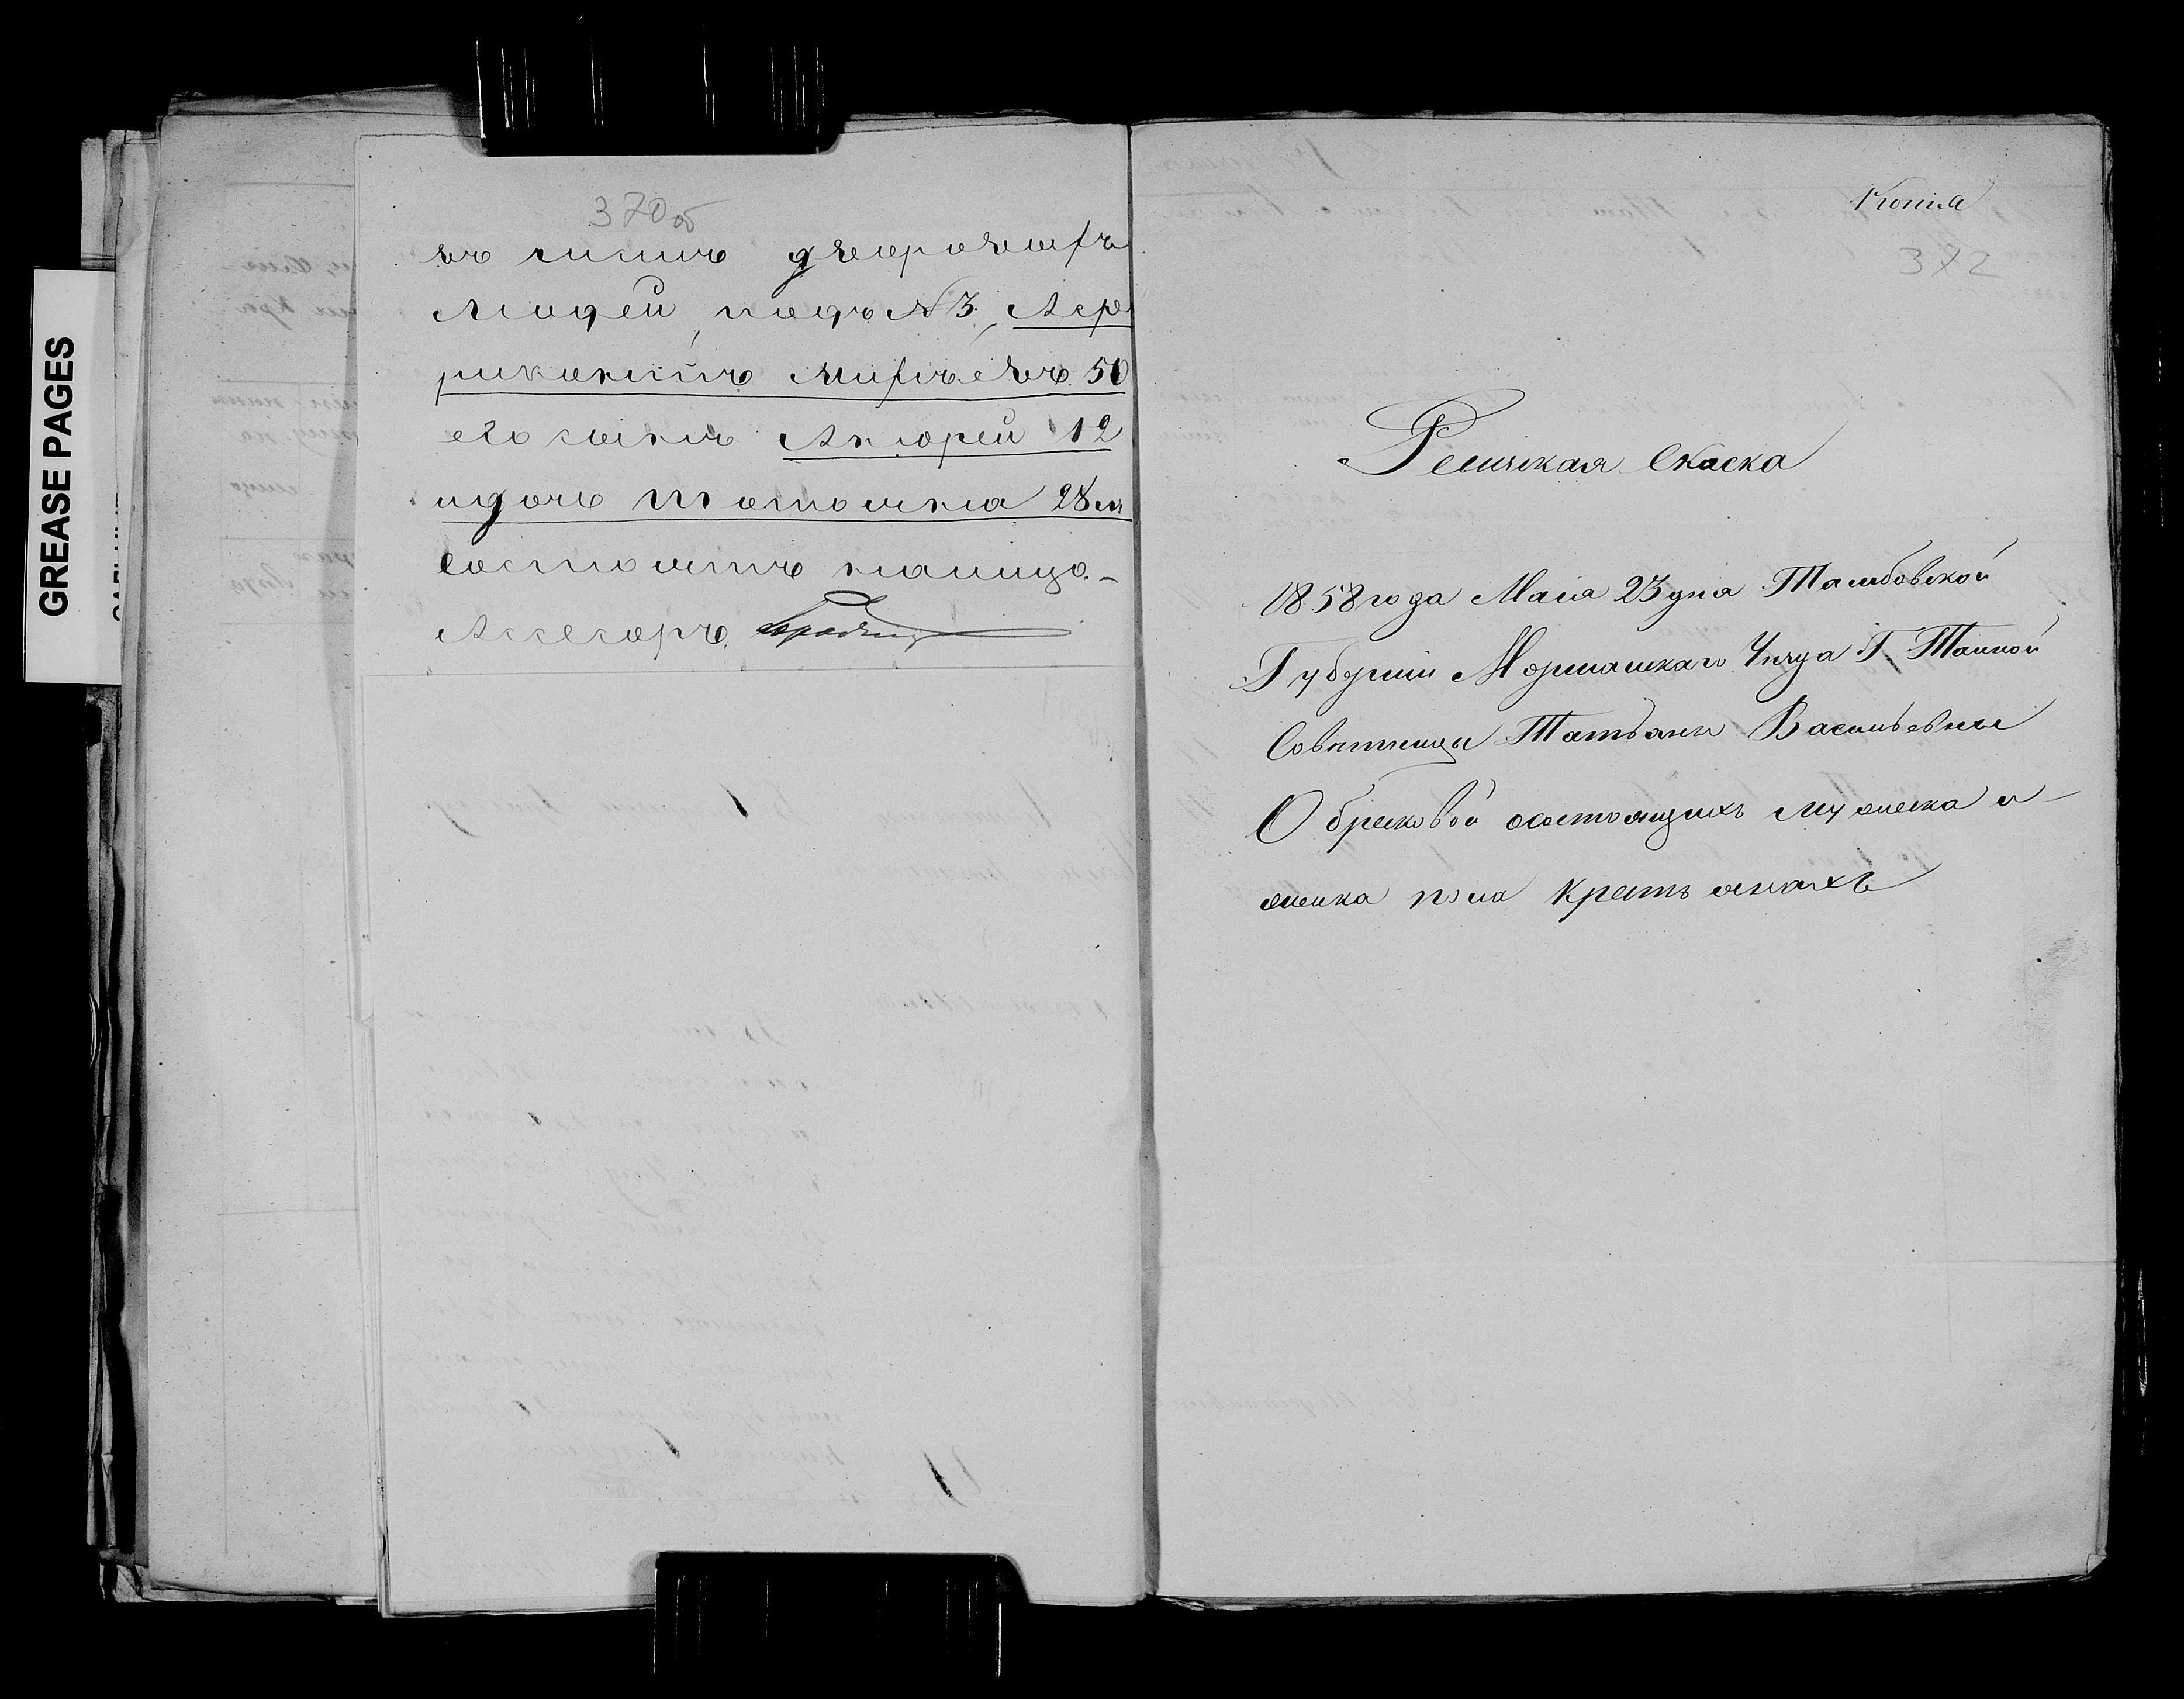 GREASE PAGES
370об
въ числѣ дворовыхъ
людей, подъ №3,
50
его сынъ Андрей 12
28
состоитъ налицо.-
Ассесоръ
Копія
372
Ревижская Скаска
1858 года Маія 23 дня Тамбовской
Губерніи Моршашкаго Уезда Г. Тайной
Советницы Татьяны Васильевны
Обресковой осостоящихъ мужеска и
женска пола крестьянахъ